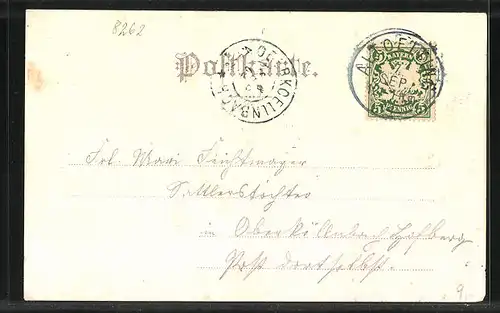 8262
Postkarte.
OBERKOELLNBACH
ALTOETTING
SEP.
BAYERN
5 PFENNIG 5
Frl. Mari Feichtmayer
Sattlerstochter
in Oberköllnbach Hofberg
Post dortselbst.
9.-